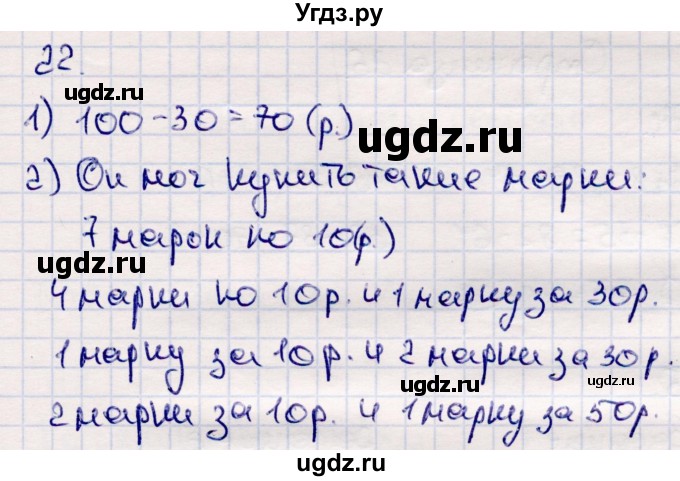 Угдз.ру
22.
ugdz.ru
1) 100-30=70 (р.)
ugdz.ru
2) Он мог купить такие марки:
7 марок по 10(р.)
ugdz.ru
4 марки по 10р. и 1 марку за 30р.
1 марку за 10р. и 2 марки за 30р.
ugdz.ru ugdz.ru
2 марки за 10р. и 1 марку за 50р.
ugdz.ru
ugdz.ru